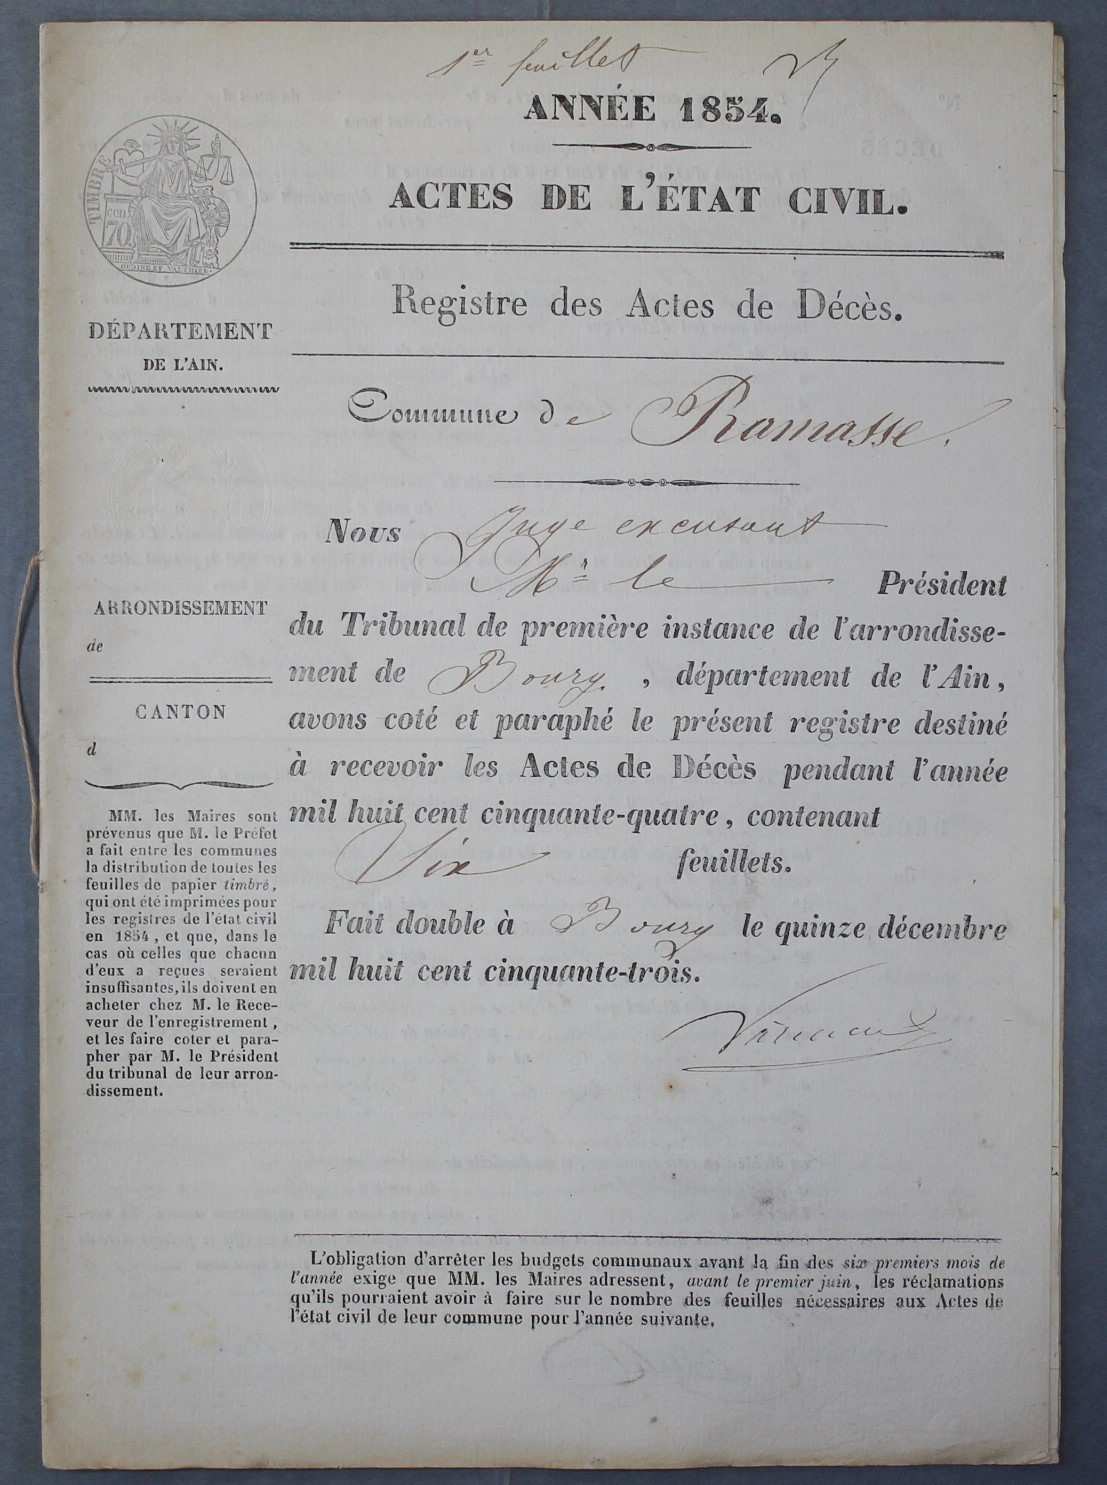 1er feuillet
ANNÉE 1854.
ACTES DE L'ÉTAT CIVIL.
TIMBRE
cen
70
Registre des Actes de Décès.
DÉPARTEMENT
DE L'AIN.
Commune de Ramasse.
Nous Juge excusant
Mr le Président
du Tribunal de première instance de l'arrondisse-
ment de Bourg, département de l'Ain,
avons coté et paraphé le présent registre destiné
à recevoir les Actes de Décès pendant l'année
mil huit cent cinquante-quatre, contenant
Six feuillets.
Fait double à Bourg le quinze décembre
mil huit cent cinquante-trois.
ARRONDISSEMENT
de
CANTON
d
MM. les Maires sont
prévenus que M. le Préfet
a fait entre les communes
la distribution de toutes les
feuilles de papier timbré,
qui ont été imprimées pour
les registres de l'état civil
en 1854, et que, dans le
cas où celles que chacun
d'eux a reçues seraient
insuffisantes, ils doivent en
acheter chez M. le Rece-
veur de l'enregistrement,
et les faire coter et para-
pher par M. le Président
du tribunal de leur arron-
dissement.
L'obligation d'arrêter les budgets communaux avant la fin des six premiers mois de
l'année exige que MM. les Maires adressent, avant le premier juin, les réclamations
qu'ils pourraient avoir à faire sur le nombre des feuilles nécessaires aux Actes de
l'état civil de leur commune pour l'année suivante.